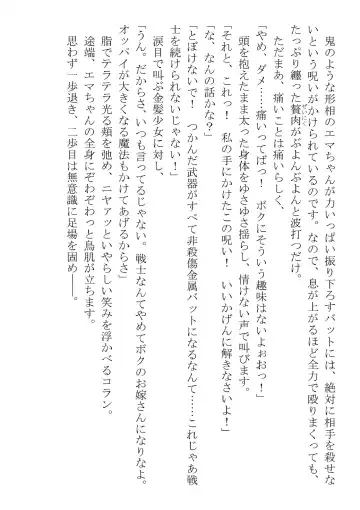 鬼のような形相のエマちゃんが力いっぱい振り下ろすバットには、絶対に相手を殺せな
いという呪いがかけられているのです。なので、息が上がるほど全力で殴りまくっても、
たっぷり纏った贅肉がぶよんぶよんと波打つだけ。
ただまあ、痛いことは痛いらしく、
「やめ、ダメ……痛いってばっ！　ボクにそういう趣味はないよぉおっ！」
頭を抱えたまま太った身体をゆさゆさ揺らし、情けない声で叫びます。
「それと、これっ！　私の手にかけたこの呪い！　いいかげんに解きなさいよ！」
「な、なんの話かな？」
「とぼけないで！　つかんだ武器がすべて非殺傷金属バットになるなんて――これじゃあ戦
士を続けられないじゃない！」
涙目で叫ぶ金髪少女に対し、
「うん。だからさ、いつも言ってるじゃない。戦士なんてやめてボクのお嫁さんになりなよ。
オッパイが大きくなる魔法もかけてあげるからさ」
脂でテラテラ光る頬を弛め、ニヤァッといやらしい笑みを浮かべるコラン。
途端、エマちゃんの全身にぞわぞわっと鳥肌が立ちます。
思わず一歩退き、二歩目は無意識に足場を固め――。